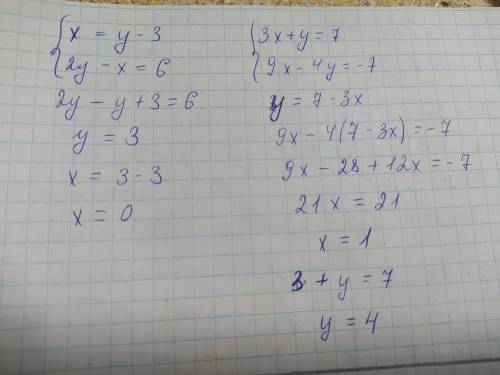 x = y - 3
2y - x = 6
2y - y + 3 = 6
y = 3
x = 3 - 3
x = 0
3x + y = 7
9x - 4y = -7
y = 7 - 3x
9x - 4(7 - 3x) = -7
9x - 28 + 12x = -7
21x = 21
x = 1
3 + y = 7
y = 4